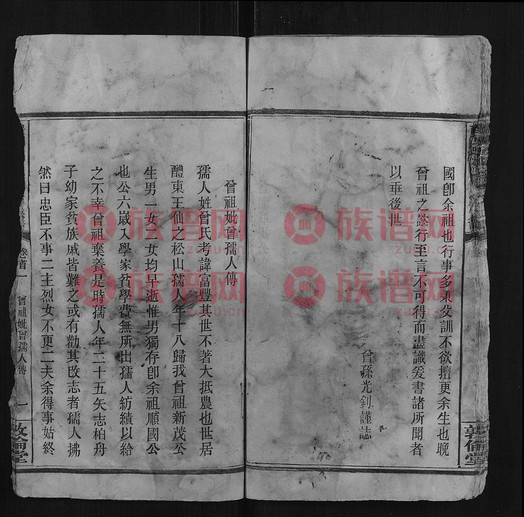 國卽余祖也行事多見父訓不欲擅更余生也晚
曾祖之遂行至言不可得而盡識爰書諸所聞者
以垂後世
曾孫光釗謹誌
曾祖妣曾孺人傳
孺人姓曾氏考諱富豐其世不著大抵農也世居
醴東王仙之松山孺人年十八歸我曾祖新茂公
生男一女二女均早逝惟男獨存卽余祖順國公
也公六歲入學家貧學費無所出孺人紡績以給
之不幸曾祖棄養是時孺人年二十五矢志柏舟
子幼家貧族戚皆難之或有勸其改志者孺人拂
然曰忠臣不事二主烈女不更二夫余得事始終
卷首一
曾祖妣曾孺人傳
一
敦倫堂
敦倫堂
族谱网
族谱网
族谱网
族谱网